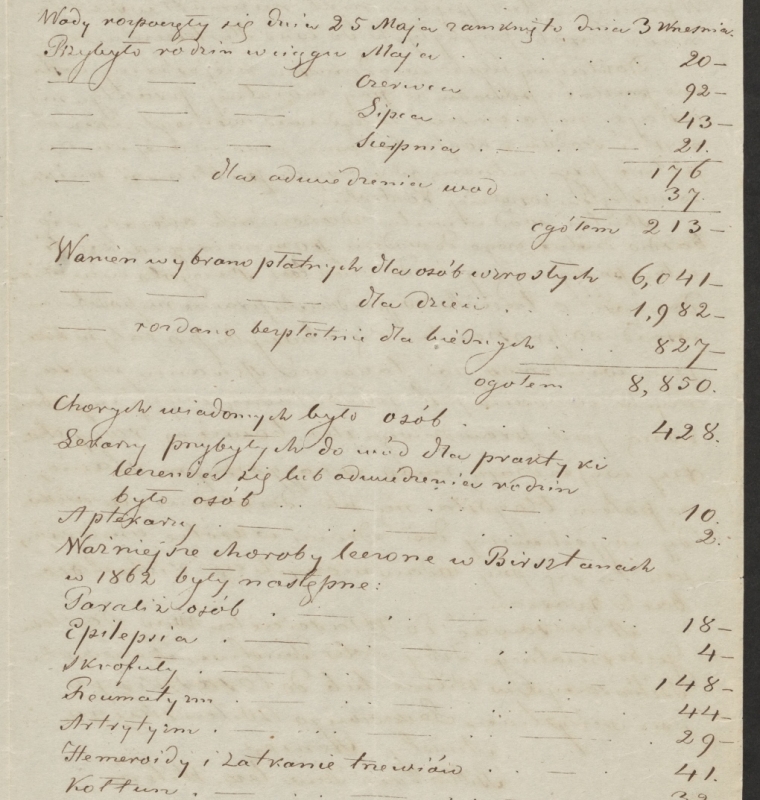 Wody rozpoczęły się dnia 25 Maja zamknięto dnia 3 Wresnia.
Przybyło rodzin w ciągu Maja . . . . 20–
— — — Czerwca . . . . 92–
— — — Lipca . . . . 43–
— — — Sierpnia . — . . — 21.
176
— — dla odwiedzenia wod . . . 37.
ogółem 213–
Wanien wybrano płatnych dla osób wzrosłych 6,041–
— — — dla dzieci . . . 1,982–
— rozdano bezpłatnie dla biednych . . . 827–
ogołem 8,850.
Chorych wiadomych było osób . . . . 428.
Lekarzy przybyłych do wód dla praktyki
leczenia się lub odwiedzenia rodzin
było osób . . — . — 10.
Aptekarzy . — . — . — . 2.
Ważniejsze choroby leczone w Birsztanach
w 1862 były następne:
Paraliż osób . — . — . . . 18–
Epilepsia . — . — . . . 4–
Skrofuły . — . — . . . 148–
Reumatyzm . — . — . . . 44–
Artrytyzm . — . — . . . 29–
Hemeroidy i zatkanie trzewiów . . — . 41.
Kołtun . — . — . — . 32